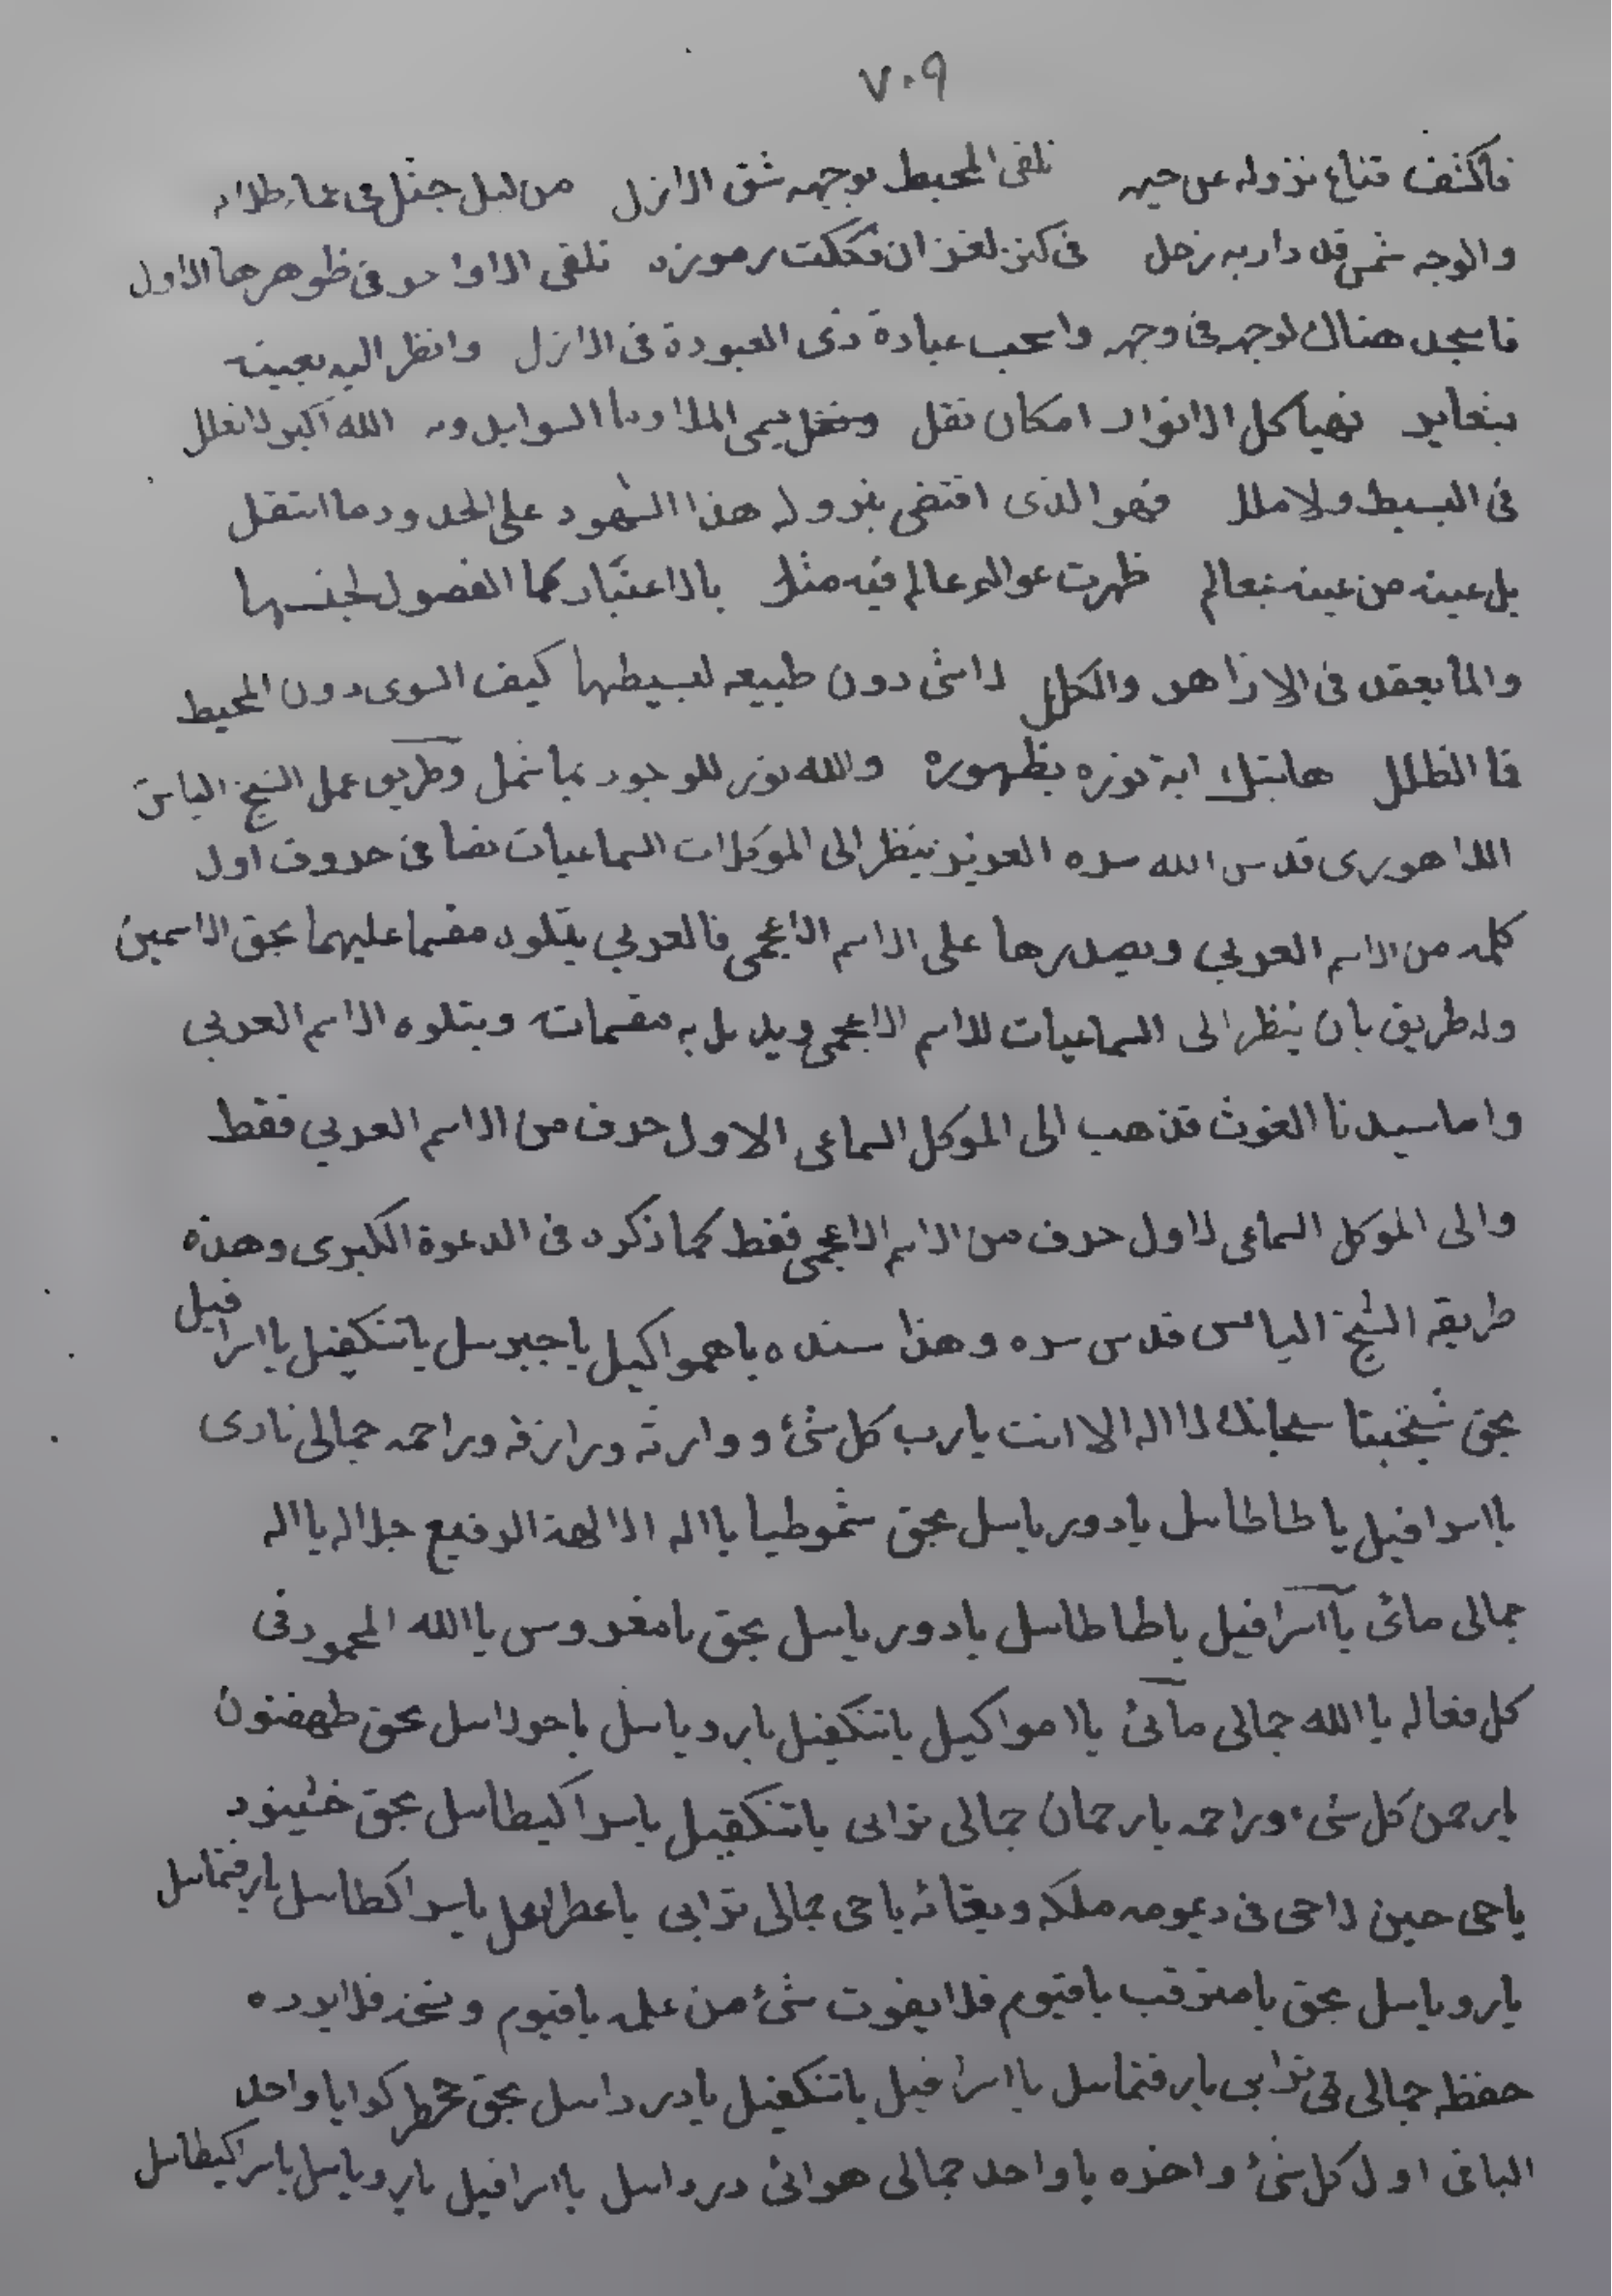 ٧٠٩
فاكشف قناع نزوله عن تلقى المحيط بوجهه شق الازل من
والوجه شمس قد دار به زحل فى كنز لغز ان فككت رموزه تلقى الاواخر فى ظهورها الاول
فاسجد هناك لوجهه فى وجهه واسحب عبادة ذى العبودة فى الازل وانظر اليه بعينه
كل الانوار امكان نقل الله اكبر لا تعلل
فى البسيط ولا ملل فهو الذى اقتضى بنزوله هذا الشهود على الحدود وما انتقل
بل عينه من عينه بعالم ظهرت عوالم عالم فيه مثل بالاعتبار كما الفصول لجنسها
والماء يعقد فى الازاهر والكلل لا شى دون طبيعه لبسيطها كيف السوى دون المحيط
فا الظلل هاتيك اية نوره بظهوره والله نور للوجود بما شمل وطريق عمل الشيخ الياس
اللاهورى قدس الله سره العزيز ينظر الى الموكلات السماعيات نصا فى حروف اول
كلمه من الاسم العربي ويصدرها على الاسم الاعجمى فالعربي يتلوه مقسما عليهما بحق الاسمين
وله طريق بان ينظر الى السماعيات للاسم الاعجمى ويديل به مقسماته ويتلوه الاسم العربي
واما سيدنا الغوث فذهب الى الموكل السماعى الاول حرف من الاسم العربي فقط
والى الموكل السماعى لاول حرف من الاسم الاعجمى فقط كما ذكره فى الدعوة الكبرى وهذه
طريقه الشيخ الياس قدس سره وهذا سنده ياهمواكيل ياجبرىىل ياتنكفيل يااسرافيل
بحق شيخيثا سبحانك لا اله الا انت يارب كل شئ ووارثه ورازقه وراحمه جمالى نارى
يااسرافيل ياطاطاىىل يادورياىيل بحق شموطيا يااله الالهة الرفيع جلاله يااله
جمالى مائى يااسرافيل ياطاطاىىل يادورياىيل بحق يامغدوس ياالله المحمود فى
كل فعاله ياالله جمالى مائى يااهواكيل ياتنكفيل يارودياىىل ياحوراىىل بحق طهفنون
يارحمن كل شىء وراحمه يارحمان جمالى ترابى ياتنكفيل ياسراكيطاىىل بحق خثينود
ياحى حين لاحى فى ديمومه ملكه وبقائه ياحى جمالى ترابى ياسراكطاىىل يارفتماىىل
يارودياىىل بحق يامترقب ياقيوم فلا يفوت شئ من علمه ياقيوم ونسخه فلا يوده
حفظه جمالى فى ترابى يارفتماىىل يااسرافيل ياتنكفيل يادرداىىل بحق ياواحد
الباقى اول كل شئ واخره ياواحد جمالى هوائى درداىىل يااسرافيل يارودياىىل ياسراكيطاىىل